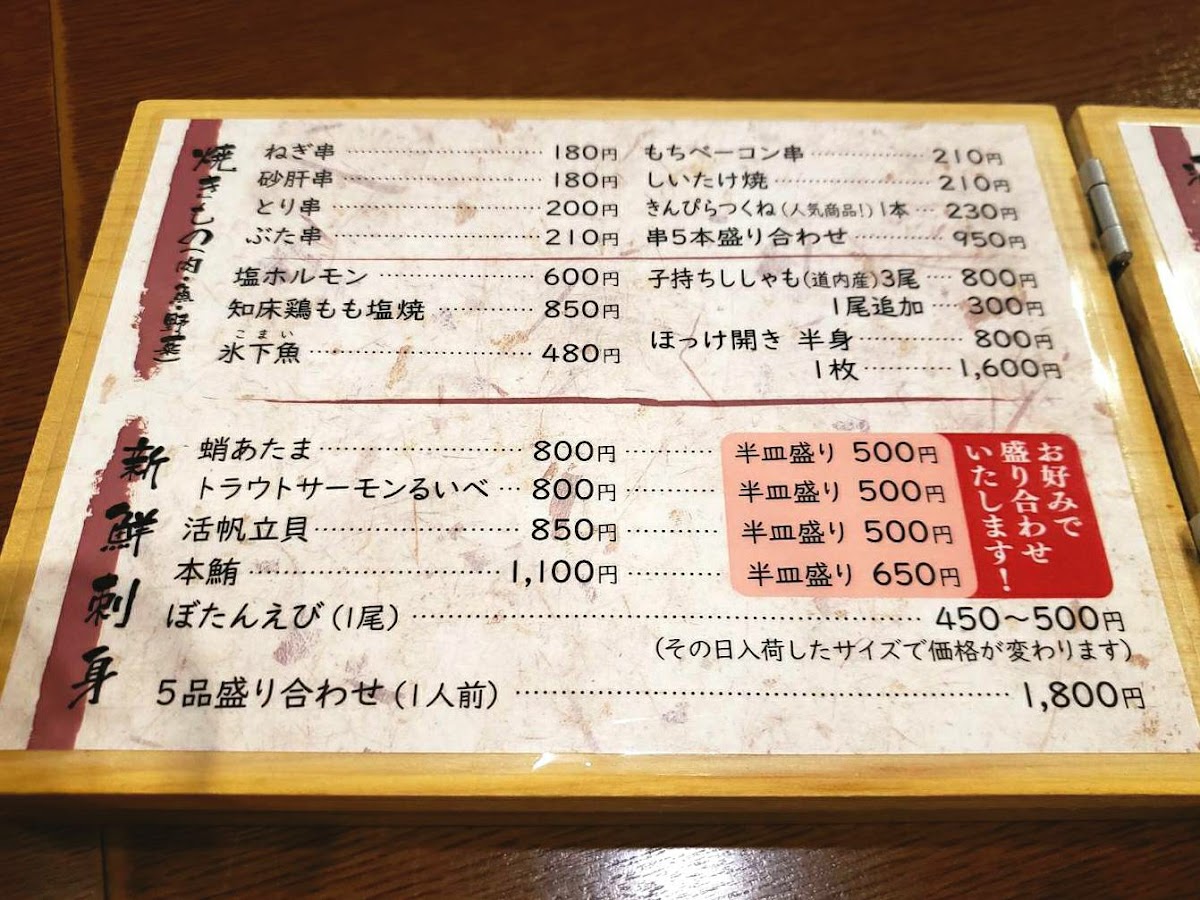 焼きもの(肉・魚・野菜)
ねぎ串 180円
砂肝串 180円
とり串 200円
ぶた串 210円
もちベーコン串 210円
しいたけ焼 210円
きんぴらつくね(人気商品!)1本 230円
串5本盛り合わせ 950円
塩ホルモン 600円
知床鶏もも塩焼 850円
こまい
氷下魚 480円
子持ちししゃも(道内産)3尾 800円
1尾追加 300円
ほっけ開き 半身 800円
1枚 1,600円
新鮮刺身
蛸あたま 800円 半皿盛り 500円
トラウトサーモンるいべ 800円 半皿盛り 500円
活帆立貝 850円 半皿盛り 500円
本鮪 1,100円 半皿盛り 650円
お好みで
盛り合わせ
いたします!
ぼたんえび(1尾) 450〜500円
(その日入荷したサイズで価格が変わります)
5品盛り合わせ(1人前) 1,800円